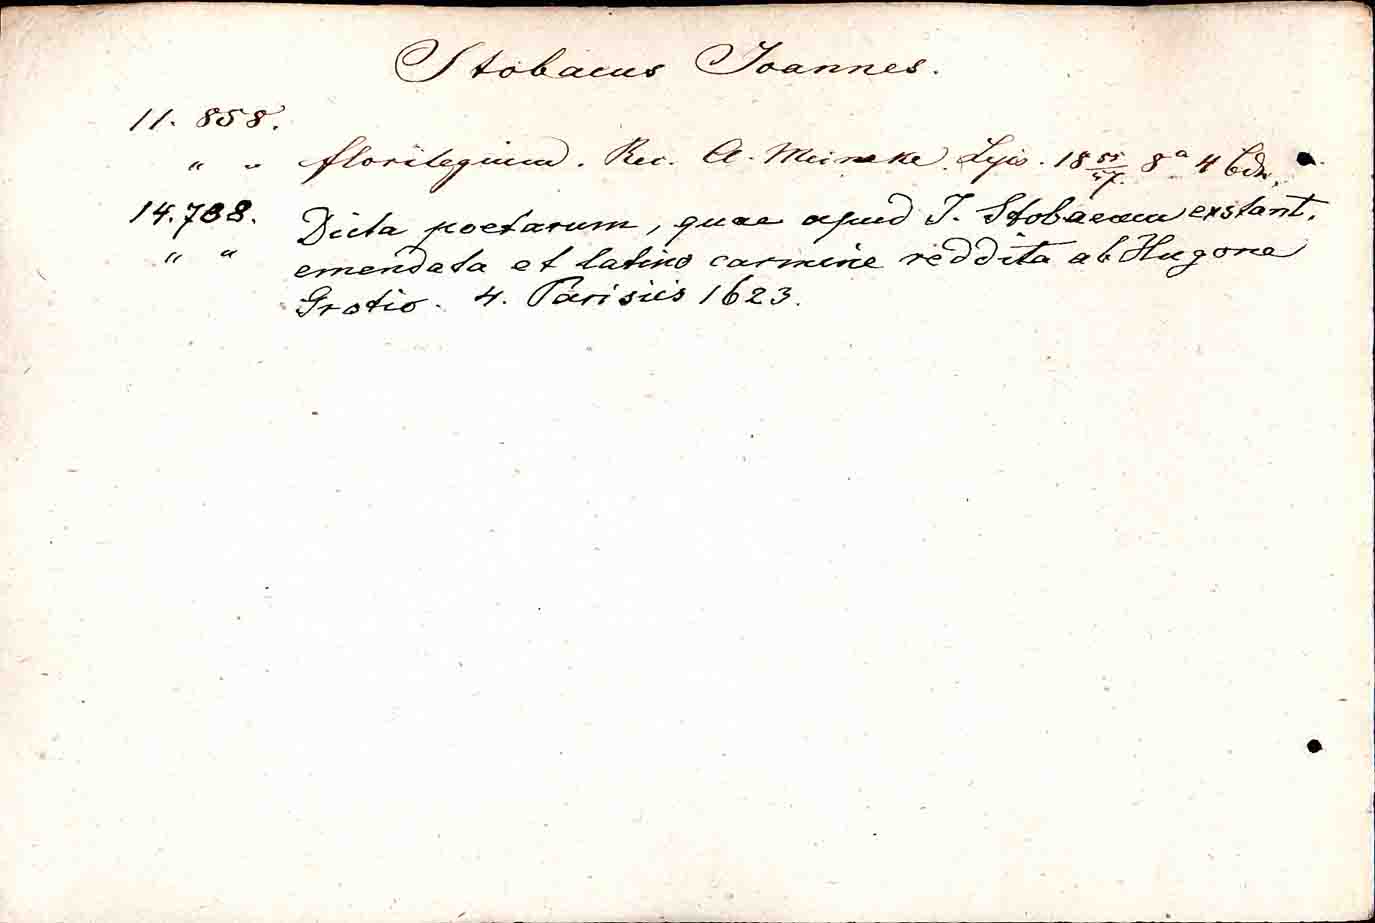 Stobaeus Joannes.
11. 858.
" " florilegium. Rec. A. Meineke. Lpis. 18 55/57. 8° 4 Bde.
14.738. Dicta poetarum, quae apud J. Stobaeum exstant.
" " emendata et latino carmine reddita ab Hugone
Grotio. 4. Parisiis 1623.